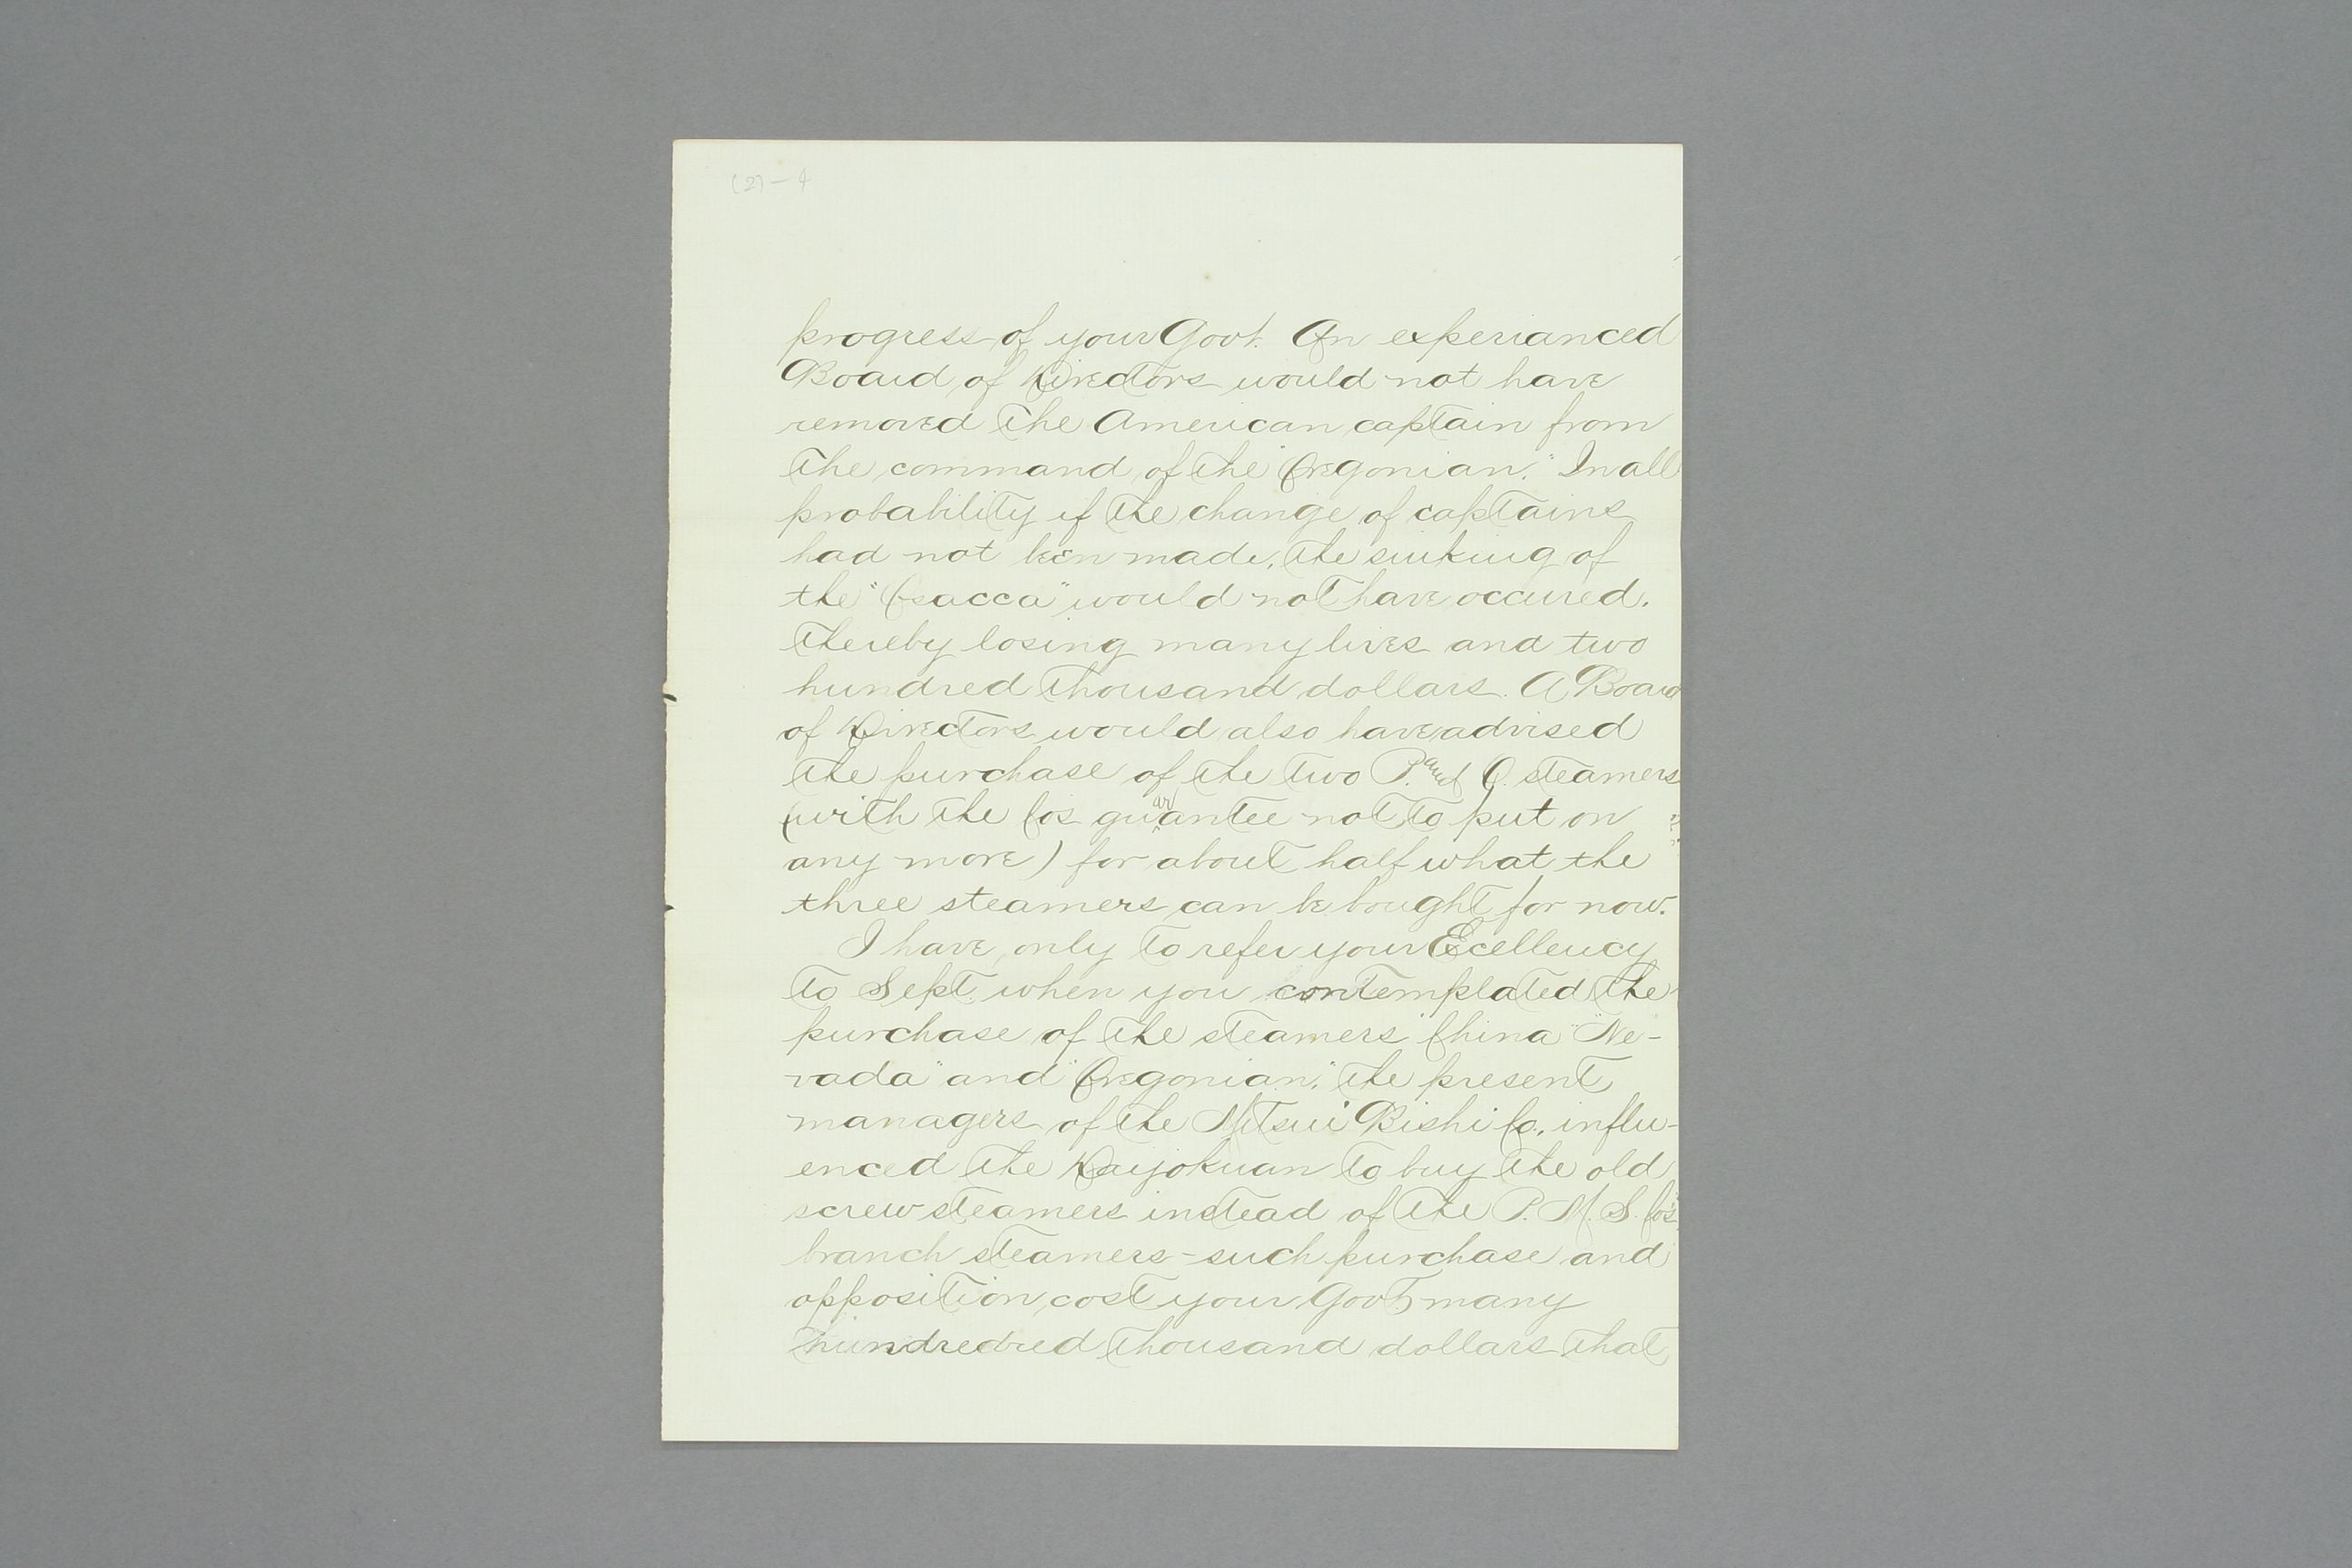 (2)-4
progress of your Govt. An experianced
Board of Directors would not have
removed the American captain from
the command of the "Oregonian." In all
probability if the change of captains
had not been made, the sinking of
the "Osacca" would not have occured.
thereby losing many lives and two
hundred thousand dollars. A Board
of Directors would also have advised
the purchase of the two P. and O. steamers
(with the Cos guarantee not to put on
any more) for about half what the
three steamers can be bought for now.
I have only to refer your Ecellency
to Sept. when you contemplated the
purchase of the steamers "China" "Ne-
vada" and "Oregonian," the present
managers of the Mitsui Bishi Co., influ-
enced the Daijokuan to buy the old
screw steamers instead of the P. M. S. Co's
branch steamers - such purchase and
opposition, cost your Govt many
hundredred thousand dollars that